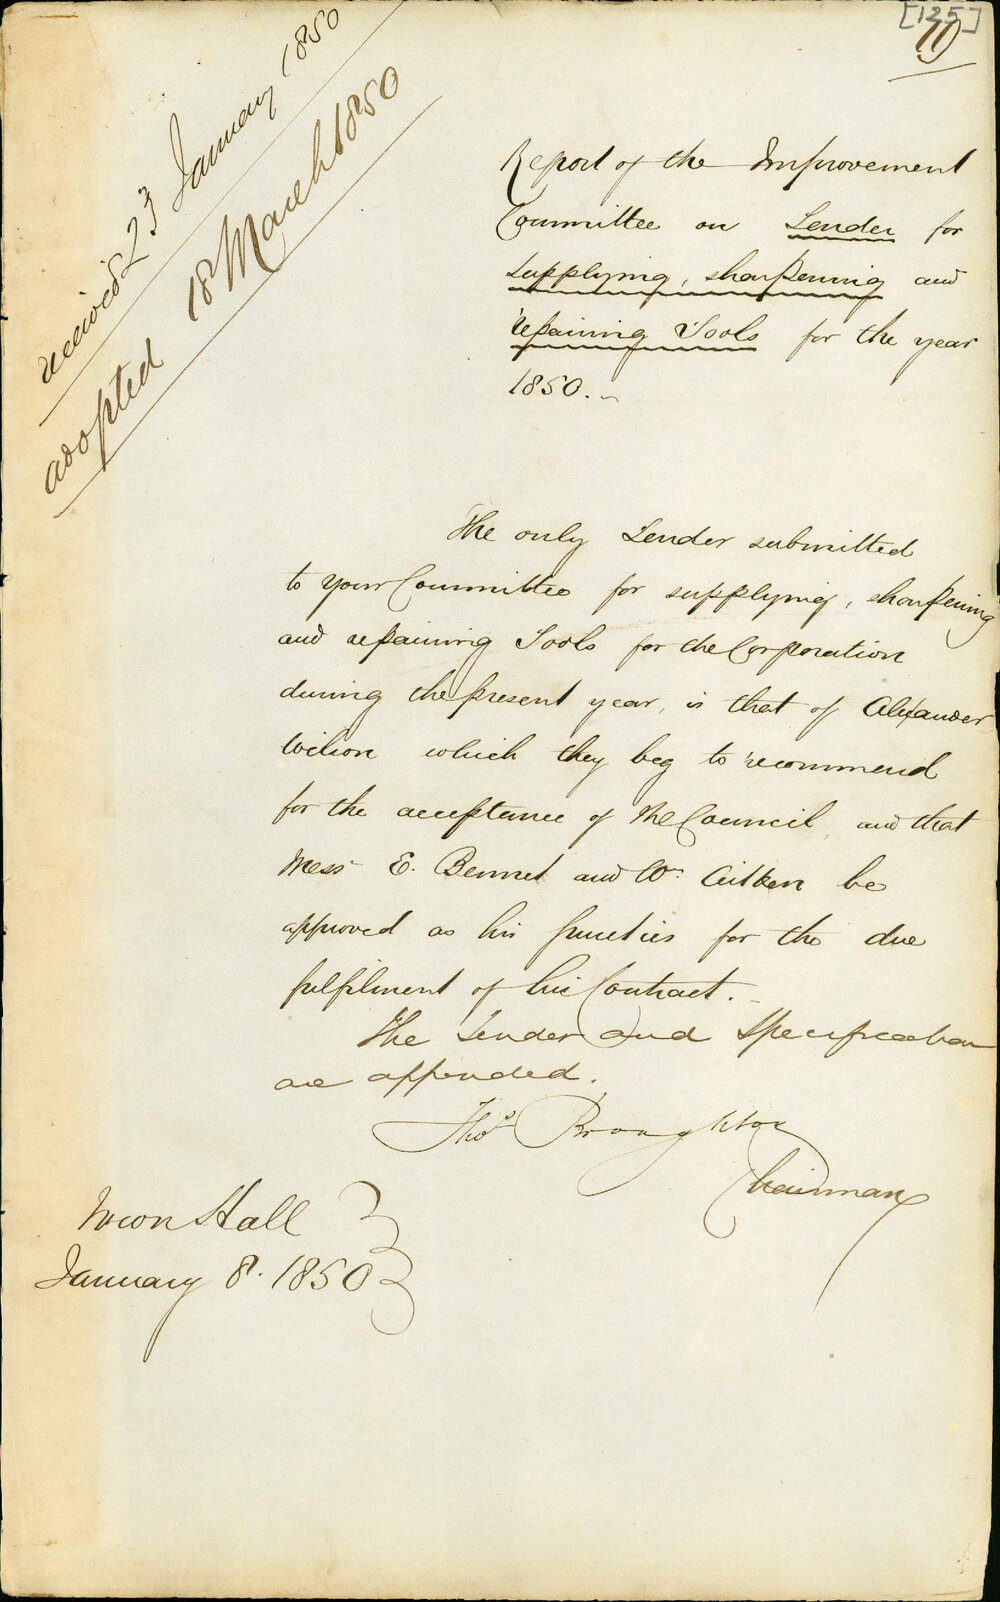 [125]
10
received 23 January 1850
adopted 18 March 1850
Report of the Improvement
Committee on Tender for
supplying, sharpening and
repairing Tools for the year
1850.
The only Tender submitted
to your Committee for supplying, sharpening
and repairing Tools for the Corporation
during the present year, is that of Alexander
Wilson which they beg to recommend
for the acceptance of the Council, and that
Mess E. Bennet and Wm Aitken be
approved as his sureties for the due
fulfilment of his Contract.
The Tender and Specification
are appended.
Thos Broughton
Chairman
Town Hall
January 8. 1850